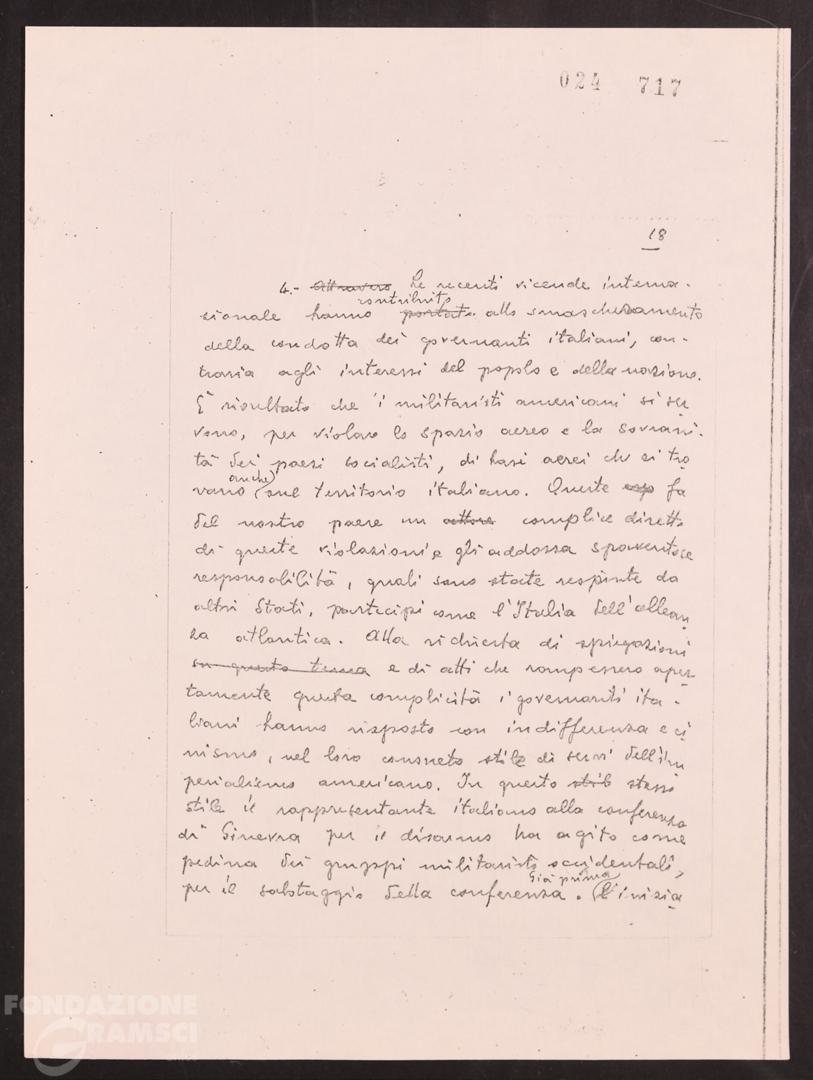 024 717
18
4.- Attraverso Le recenti vicende interna-
zionale hanno portato contribuito allo smascheramento
della condotta dei governanti italiani, con-
traria agli interessi del popolo e della nazione.
È risultato che i militaristi americani si ser
vono, per violare lo spazio aereo e la sovrani-
tà dei paesi socialisti, di basi aeree che si tro
vano anche sul territorio italiano. Questo fa
del nostro paese un attore complice diretto
di queste violazioni e gli addossa spaventose
responsabilità, quali sono state respinte da
altri Stati, partecipi come l'Italia dell'allean
za atlantica. Alla richiesta di spiegazioni
su questo tema e di atti che rompessero aper-
tamente questa complicità i governanti ita-
liani hanno risposto con indifferenza e ci
nismo, nel loro consueto stile di servi dell'im
perialismo americano. In questo stile stesso
stile il rappresentante italiano alla conferenza
di Ginevra per il disarmo ha agito come
pedina dei gruppi militaristi occidentali,
per il sabotaggio della conferenza. Già prima l'inizia
FONDAZIONE
GRAMSCI